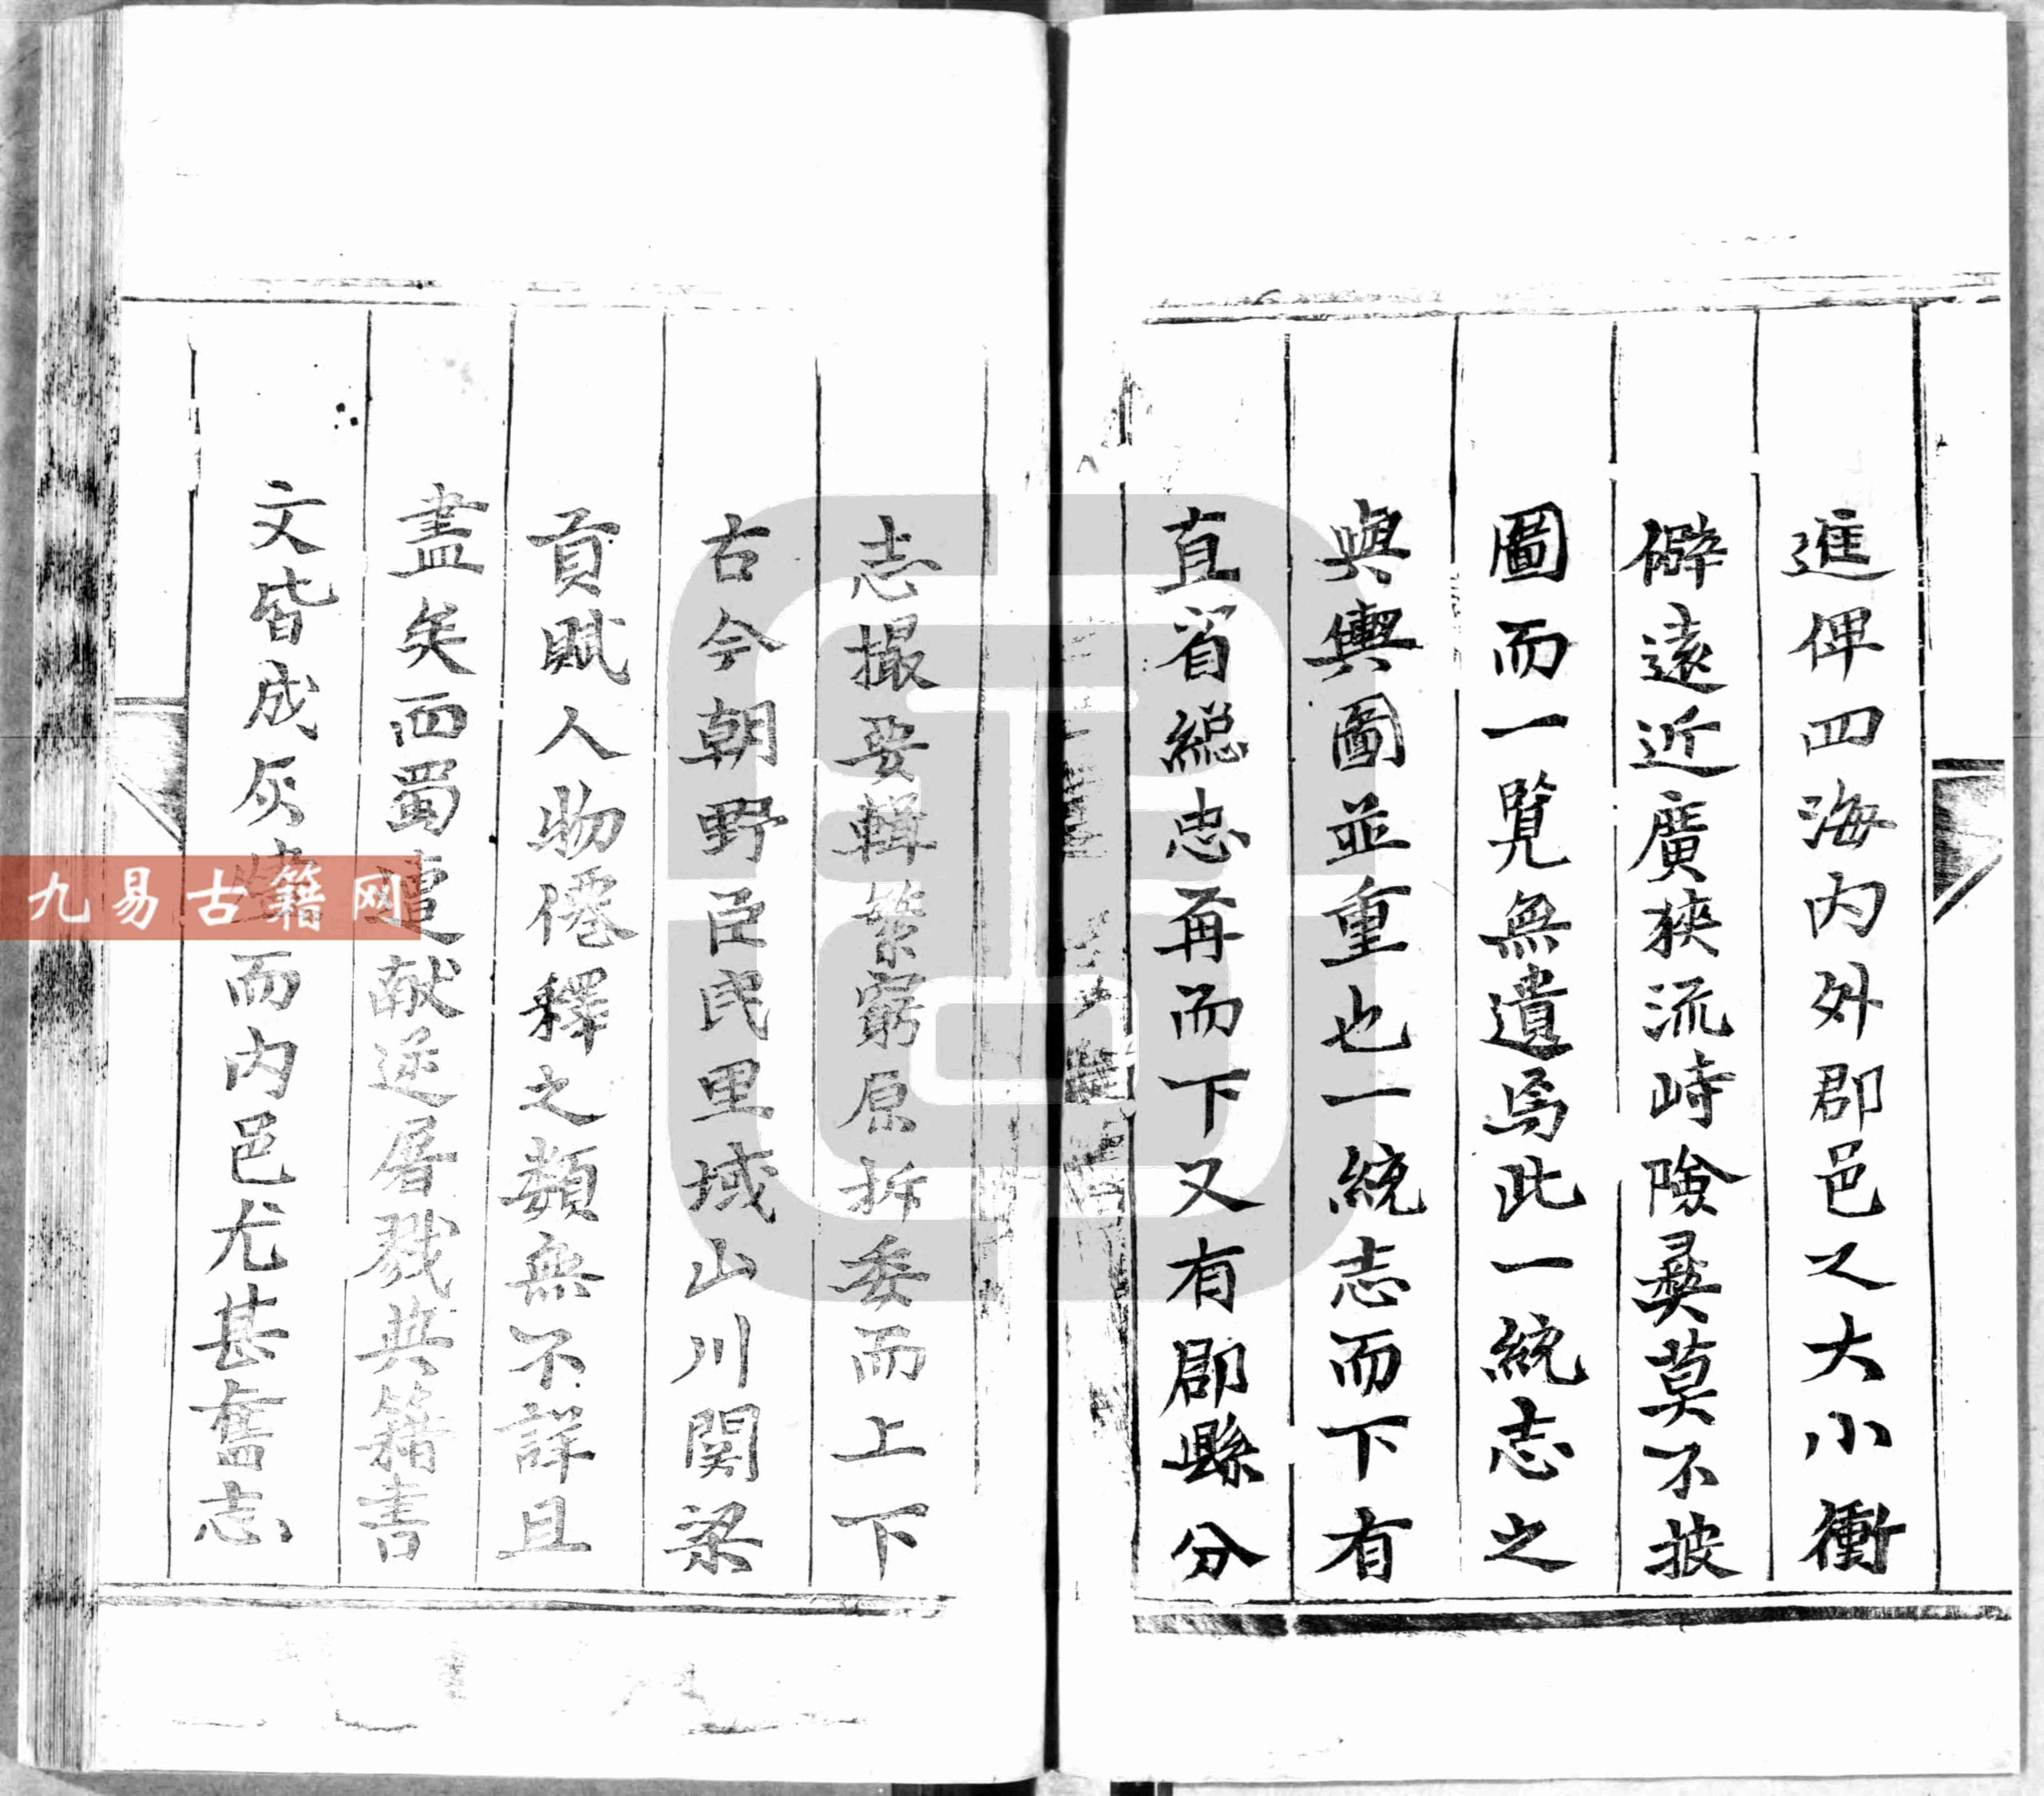 進俾四海内外郡邑之大小衝
僻遠近廣狹流峙險彝莫不披
圖而一覽無遺焉此一統志之
與輿圖並重也一統志而下有
直省總志再而下又有郡縣分
志撮要輯繁窮原拆委而上下
古今朝野臣民里域山川関梁
貢賦人物僊釋之類無不詳且
盡矣西蜀遭献逆屠戮典籍書
文皆成灰而内邑尤甚舊志
九易古籍网